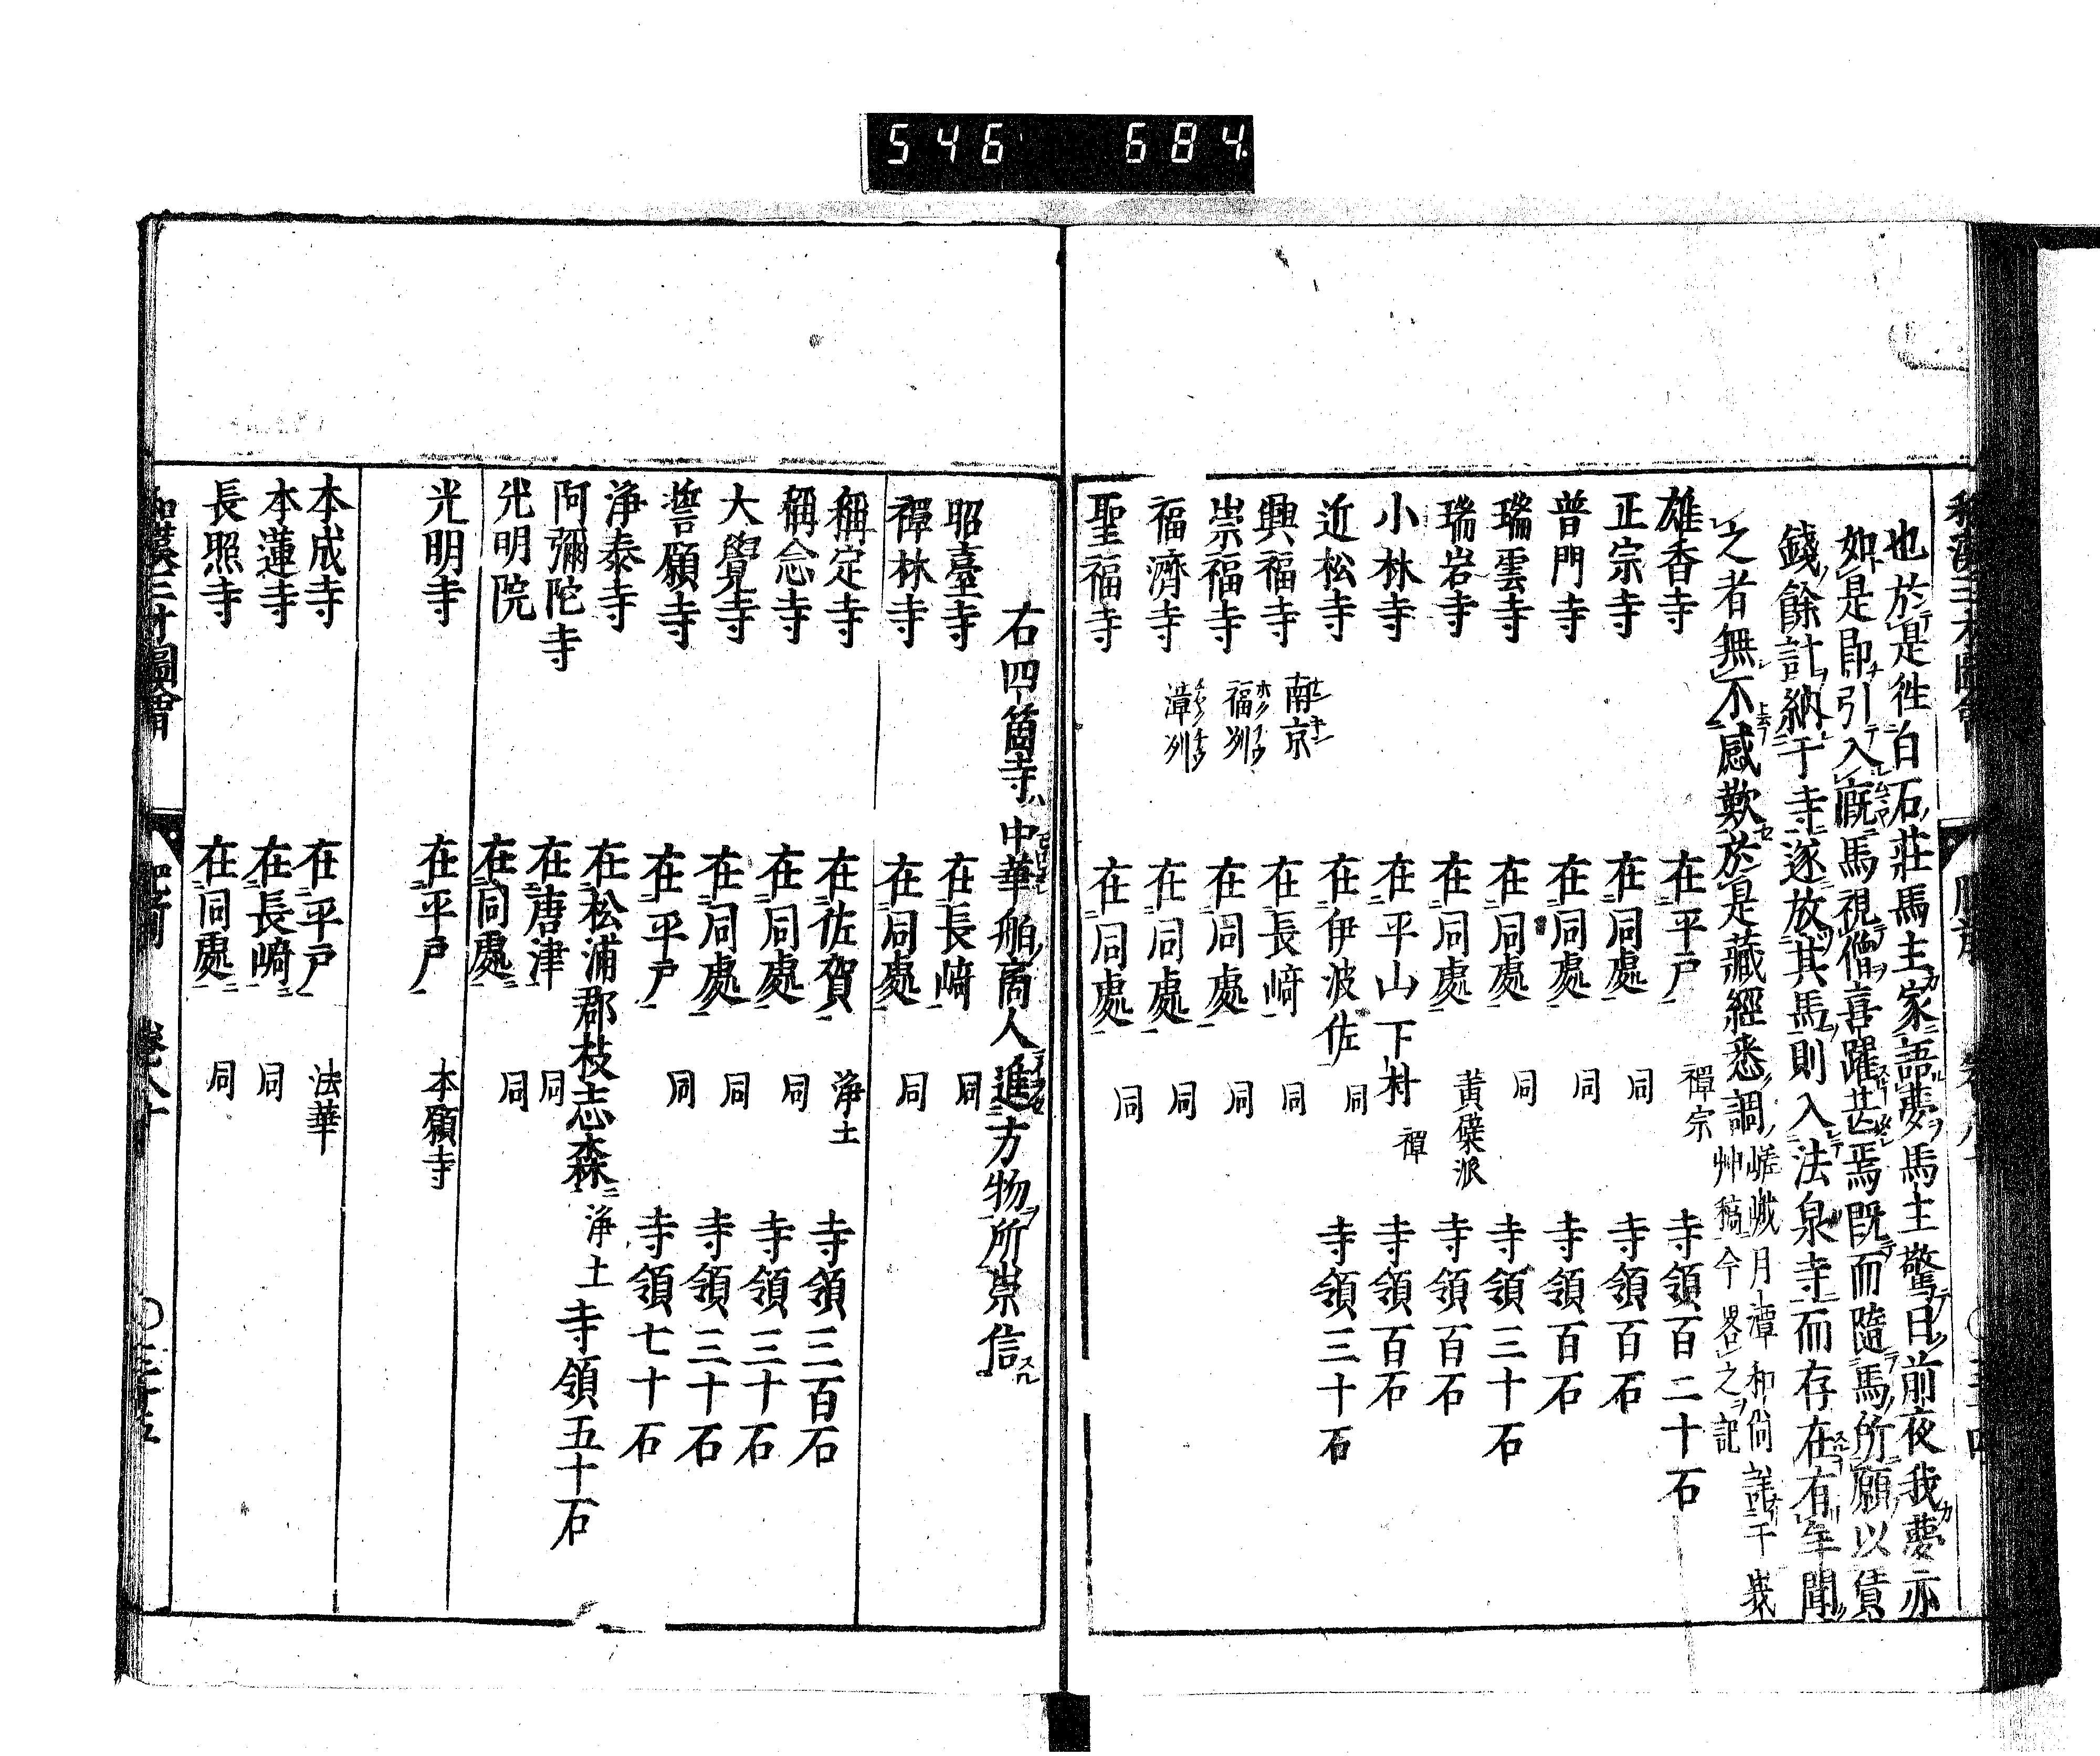 546 684
也於是徃白石莊馬主家語夢馬主驚曰前夜我夢亦
如是即引入厩馬視僧喜躍甚焉既而隨馬所願以賃
錢餘計納于寺遂放其馬則入法泉寺而存在有年聞
之者無不感歎於是藏經悉調 嵯峨月潭和尚詳于峩
艸稿今畧之記
雄香寺 在平戸 禪宗 寺領百二十石
正宗寺 在同處 同 寺領百石
普門寺 在同處 同 寺領百石
瑞雲寺 在同處 同 寺領三十石
瑞岩寺 在同處 黄檗派 寺領百石
小林寺 在平山下村 禪 寺領百石
近松寺 在伊波佐 同 寺領三十石
興福寺 南京 在長﨑 同
崇福寺 福州 在同處 同
福濟寺 漳州 在同處 同
聖福寺 在同處 同
右四箇寺ハ中華舶商人進方物所崇信スル
昭臺寺 在長﨑 同
禪林寺 在同處 同
稱定寺 在佐賀 淨土 寺領三百石
稱念寺 在同處 同 寺領三十石
大覺寺 在同處 同 寺領三十石
誓願寺 在平戸 同 寺領七十石
淨泰寺 在松浦郡枝志森 淨土 寺領五十石
阿彌陀寺 在唐津 同
光明院 在同處 同
光明寺 在平戸 本願寺
本成寺 在平戸 法華
本蓮寺 在長﨑 同
長照寺 在同處 同
和漢三才圖會 肥前 卷八十 〇三十五